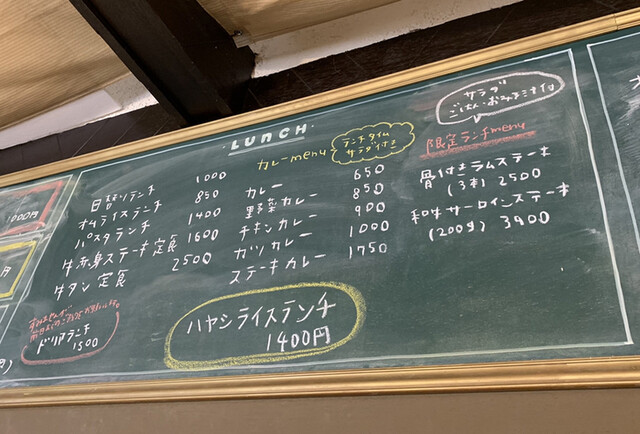 LUNCH
日替りランチ 1000
オムライスランチ 850
パスタランチ 1400
牛赤身ステーキ定食 1600
牛タン定食 2500
すみませんが
ドリアランチ
1500
カレーmenu
ランチタイム
サラダ付き
カレー 650
野菜カレー 850
チキンカレー 900
カツカレー 1000
ステーキカレー 1750
ハヤシライスランチ
1400円
サラダ
ごはん・おみそ汁付
限定ランチmenu
骨付きラムステーキ
(3本) 2500
和牛サーロインステーキ
(200g) 3900
1000円
円